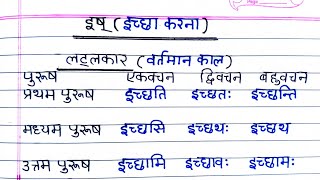 इष् (इच्छा करना)
लट्लकार (वर्तमान काल)
पुरूष एकवचन द्विवचन बहुवचन
प्रथम पुरूष इच्छति इच्छतः इच्छन्ति
मध्यम पुरूष इच्छसि इच्छथः इच्छथ
उत्तम पुरूष इच्छामि इच्छावः इच्छामः